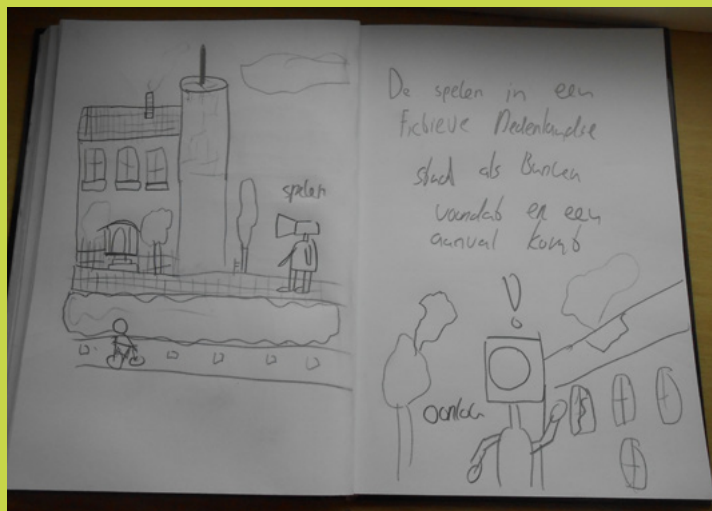 spelen
De spelen in een
fictieve Nederlandse
stad als Burger
voordat er een
aanval komt
oorlog